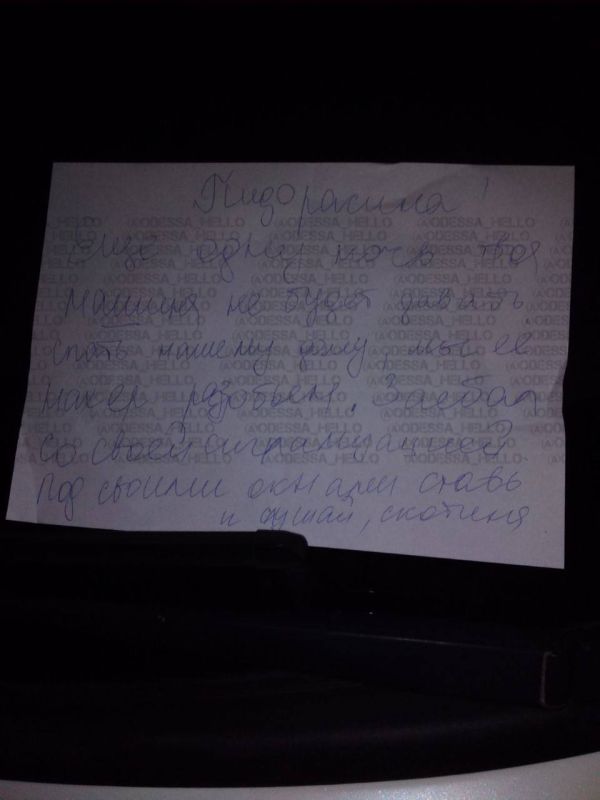 Пидорасина!
Еще одну ночь твоя
машина не будет давать
спать нашему дому, мы ее
нахер разобьем. Заебал
со своей сигнализацией.
Под своими окнами ставь
и слушай, скотина
@ODESSA_HELLO